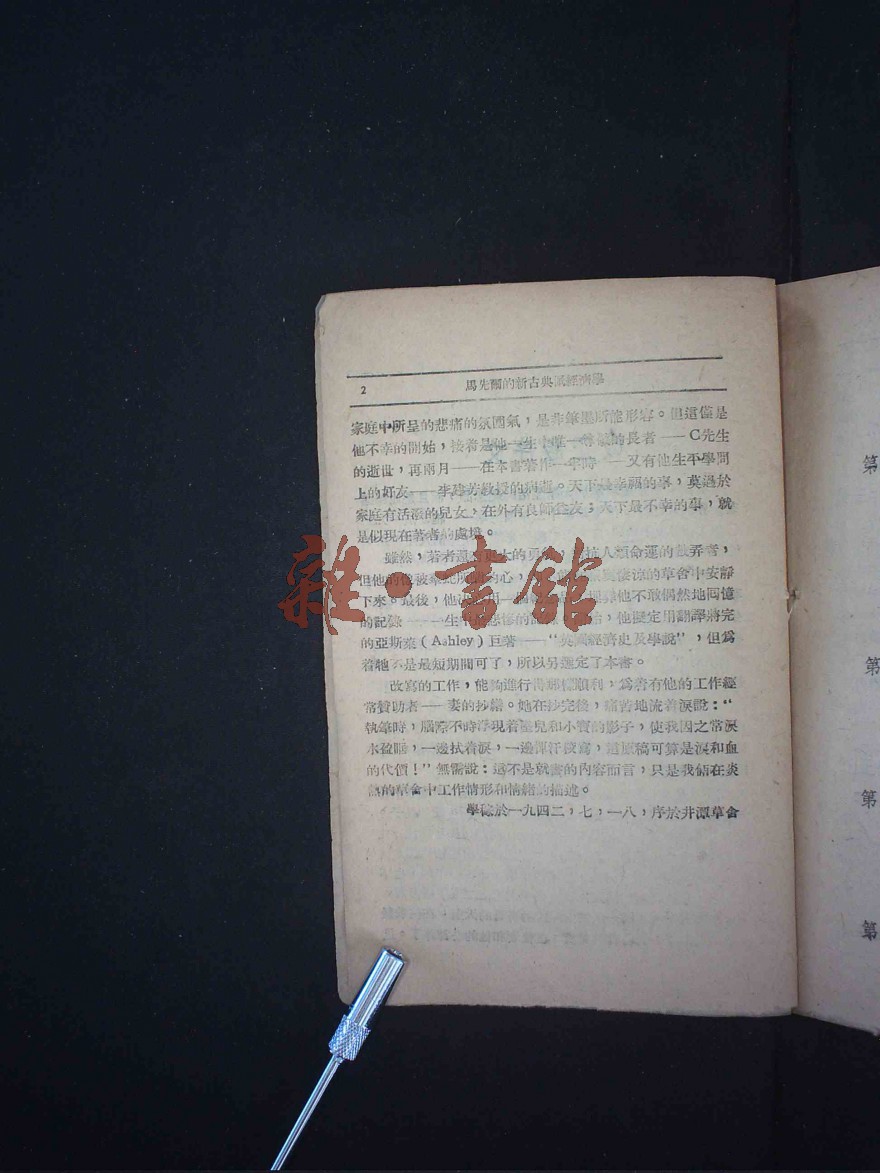 2
馬先爾的新古典派經濟學
家庭中所呈的悲痛的氛圍氣，是非筆墨所能形容。但這僅是
他不幸的開始，接着是他一生中唯一尊嚴的長者——C先生
的逝世，再兩月——在本書著作一半時——又有他生平學問
上的好友——李建芳教授的病逝。天下最幸福的事，莫過於
家庭有活潑的兒女，在外有良師益友；天下最不幸的事，就
是似現在著者的處境。
雖然，著者還有更大的勇氣，抗人類命運的戲弄者，
但他的心，的草舍中安靜
下來。最後，他不敢偶然地回憶
的記錄——一生中最悲慘的，他擬定用翻譯將完
的亞斯萊(Ashley)巨著——“英國經濟史及學說”，但爲
着牠不是最短期間可了，所以另選定了本書。
改寫的工作，能夠進行得那樣順利，爲着有他的工作經
常贊助者——妻的抄繕。她在抄完後，痛苦地流着淚說：“
執筆時，腦際不時浮現着墨兒和小寶的影子，使我因之常淚
水盈眶，一邊拭着淚，一邊揮汗校寫，這原稿可算是淚和血
的代價！”無需說：這不是就書的內容而言，只是我倆在炎
熱的草舍中工作情形和情緒的描述。
學稼於一九四二，七，一八，序於井潭草舍
雜·書館
第
第
第
第